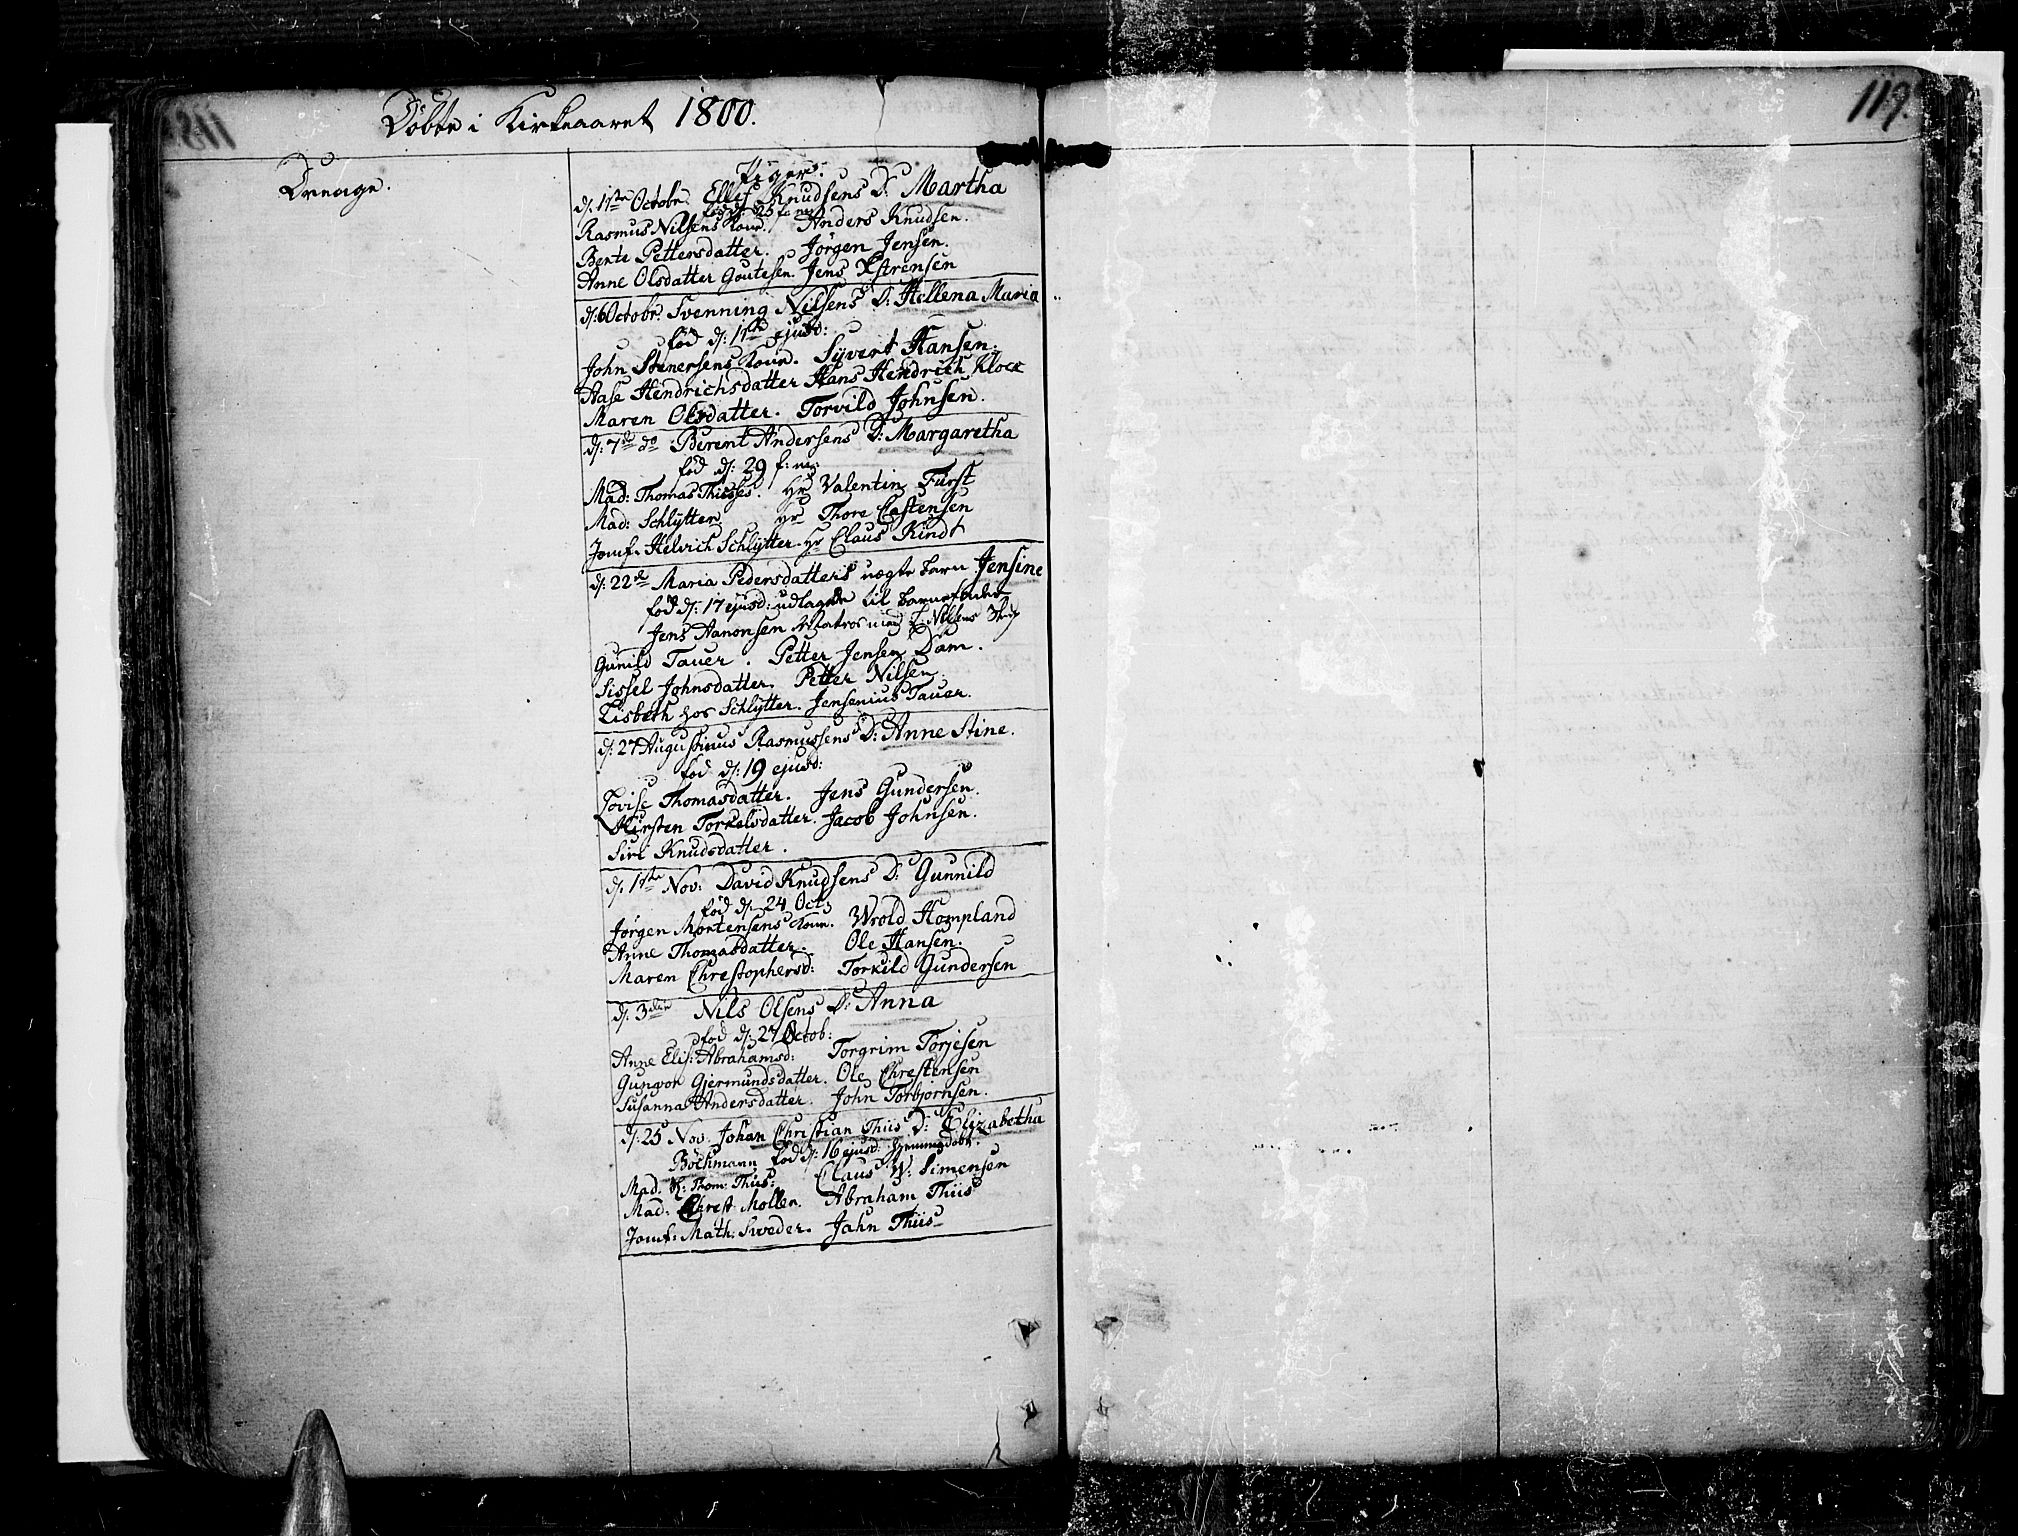 Döbte i Kirkeaaret 1800.
119.
Drenge.
Piger:
d: 1ste Octobr. Ellef Knudsens D: Martha
föd d: 25 f: m:
Rasmus Nilsens Kone. Anders Knudsen.
Bente Pettersdatter. Jörgen Jensen.
Anne Olsdatter Goutesen. Jens
d: 6 Octobr. Svenning Nilsens D: Hellena Maria
föd d: 1ste ejusd:
John Stenersens Kone. Syvert Hansen.
Aase Hendrichsdatter Hans Hendrich Klock
Maren Olsdatter. Torvild Johnsen.
d: 7de do Berent Andersens D: Margaretha
föd d: 29 f: m:
Mad: Thomas Thisses. Hr Valentin Fürst
Mad: Schlytter. Hr Thore Castensen
Jomf. Helvich Schlytter. Hr Claus Kindt
d: 22de Maria Pedersdatters uægte barn Jensine
föd d: 17 ejusd: udlagde til barnefader
Jens Aanonsen Matros med Nilsens Skip
Gunild Tauer. Petter Jensen Dam.
Sissel Johnsdatter. Petter Nilsen.
Lisbeth hos Schlytter. Jensenius Tauer.
d: 27 Augustinus Rasmussens D: Anne Stine.
föd d: 19 ejusd:
Lovise Thomasdatter. Jens Gundersen.
Kirsten Torkelsdatter. Jacob Johnsen.
Siri Knudsdatter.
d: 1ste Nov: David Knudsens D: Gunnild
föd d: 24 Oct:
Jørgen Mortensens Kone. Wrold Hompland
Anne Thomasdatter. Ole Hansen.
Maren Chrestophersd: Torkild Gundersen
d: 3die Nils Olsens D: Anna
föd d: 27 Octob:
Anne Elis: Abrahamsd: Torgrim Torjesen
Gunvor Gjermundsdatter. Ole Chrestensen
Susanna Andersdatter. John Torbjørnsen.
d: 25 Nov. Johan Christian Thiis D: Elizabetha
Böckmann föd d: 16 ejusd: hjemmedöbt.
Mad. H: Thom: Thiis: Claus W: Simensen
Mad: Chrest Mollen. Abraham Thiis
Jomf: Math: Sweder. Jahn Thiis